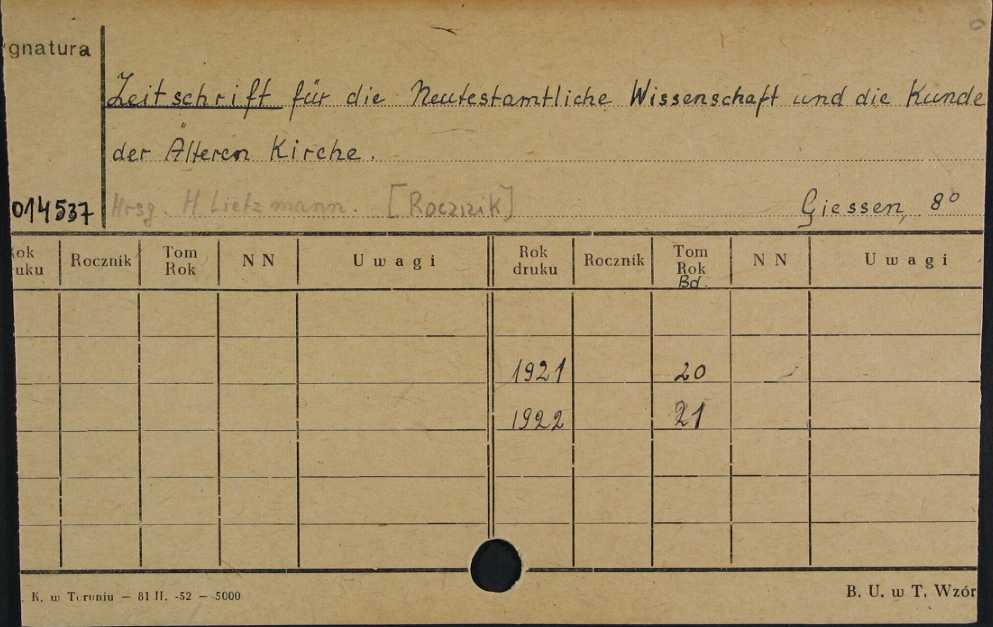 gnatura
Zeitschrift für die Neutestamtliche Wissenschaft und die Kunde
der Älteren Kirche.
014537 Hrsg. H Lietzmann. [Rocznik] Giessen, 8°
ok uku Rocznik Tom Rok N N Uwagi Rok druku Rocznik Tom Rok Bd. N N Uwagi
1921 20
1922 21
K. w Toruniu — 81 II. -52 — 5000 B. U. w T. Wzór